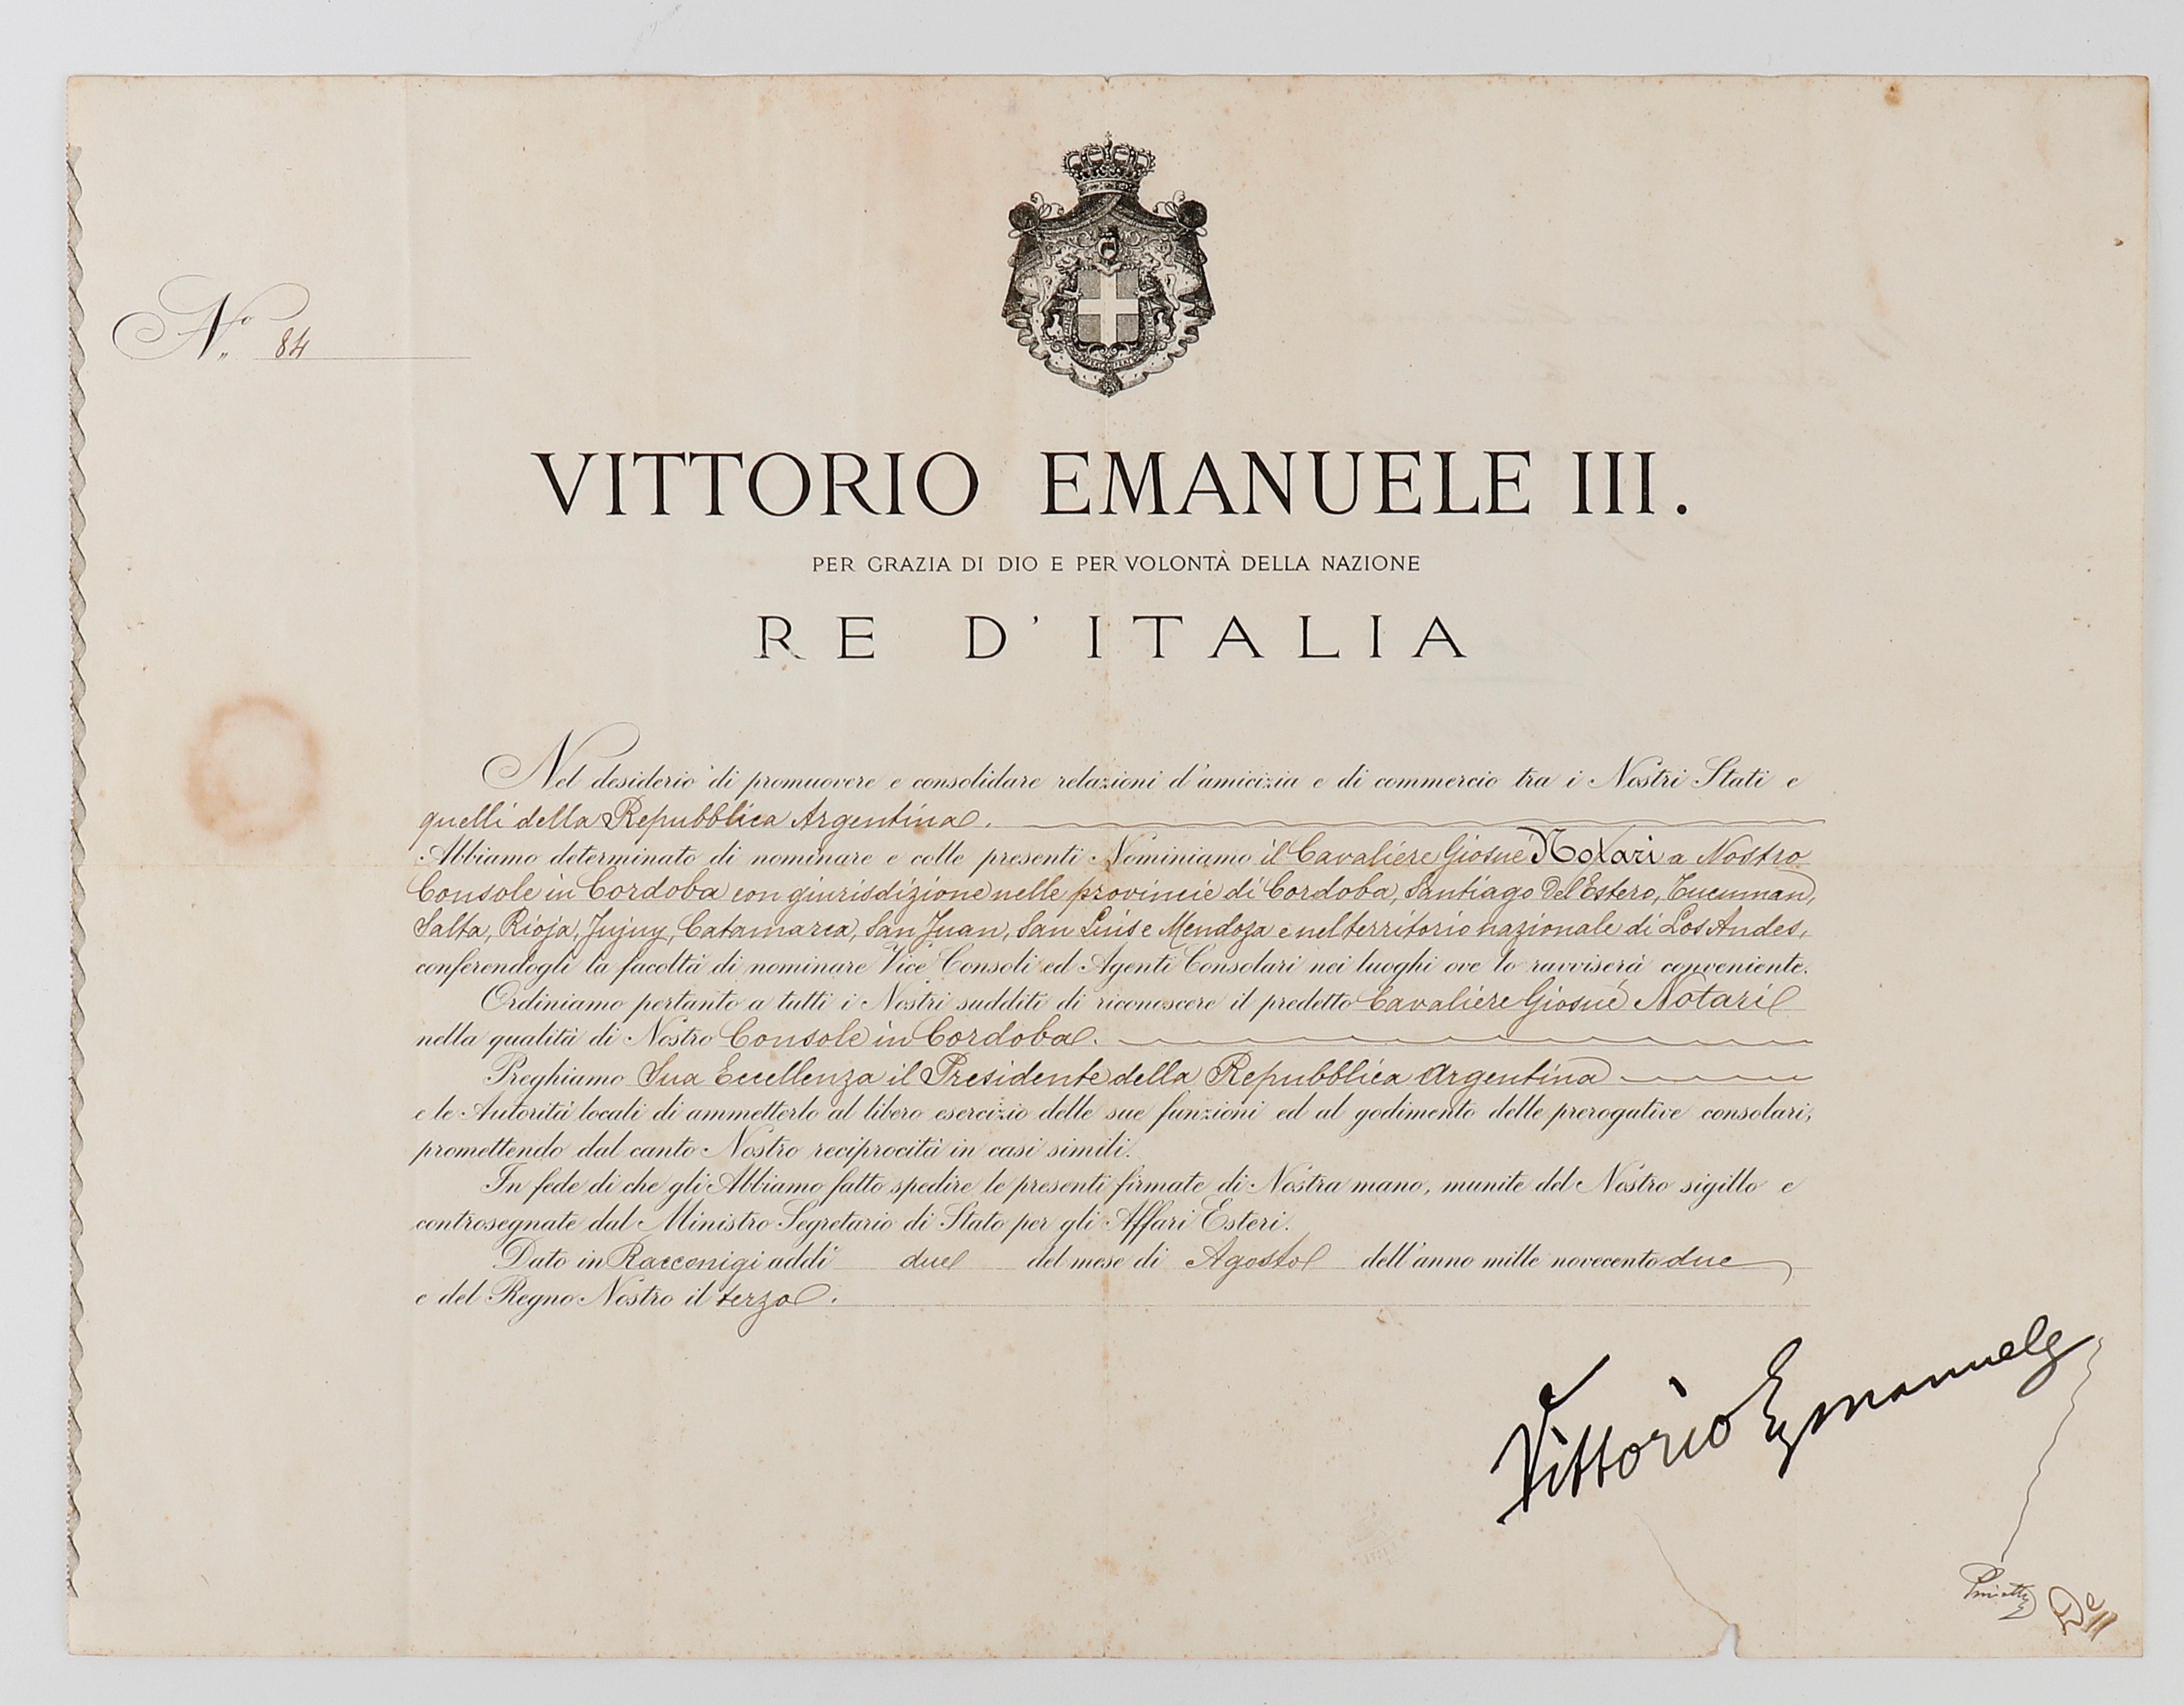 N.o 84
VITTORIO EMANUELE III.
PER GRAZIA DI DIO E PER VOLONTÀ DELLA NAZIONE
RE D'ITALIA
Nel desiderio di promuovere e consolidare relazioni d'amicizia e di commercio tra i Nostri Stati e
quelli della Repubblica Argentina.
Abbiamo determinato di nominare e colle presenti Nominiamo il Cavaliere Giosuè Notari a Nostro
Console in Cordoba con giurisdizione nelle provincie di Cordoba, Santiago Del Estero, Tucuman,
Salta, Rioja, Jujuy, Catamarca, San Juan, San Luis e Mendoza e nel territorio nazionale di Los Andes,
conferendogli la facoltà di nominare Vice Consoli ed Agenti Consolari nei luoghi ove lo ravviserà conveniente.
Ordiniamo pertanto a tutti i Nostri sudditi di riconoscere il predetto Cavaliere Giosuè Notari
nella qualità di Nostro Console in Cordoba.
Preghiamo Sua Eccellenza il Presidente della Repubblica Argentina
e le Autorità locali di ammetterlo al libero esercizio delle sue funzioni ed al godimento delle prerogative consolari,
promettendo dal canto Nostro reciprocità in casi simili.
In fede di che gli Abbiamo fatto spedire le presenti firmate di Nostra mano, munite del Nostro sigillo e
controsegnate dal Ministro Segretario di Stato per gli Affari Esteri.
Dato in Racconigi addì due del mese di Agosto dell'anno mille novecento due
e del Regno Nostro il terzo.
Vittorio Emanuele